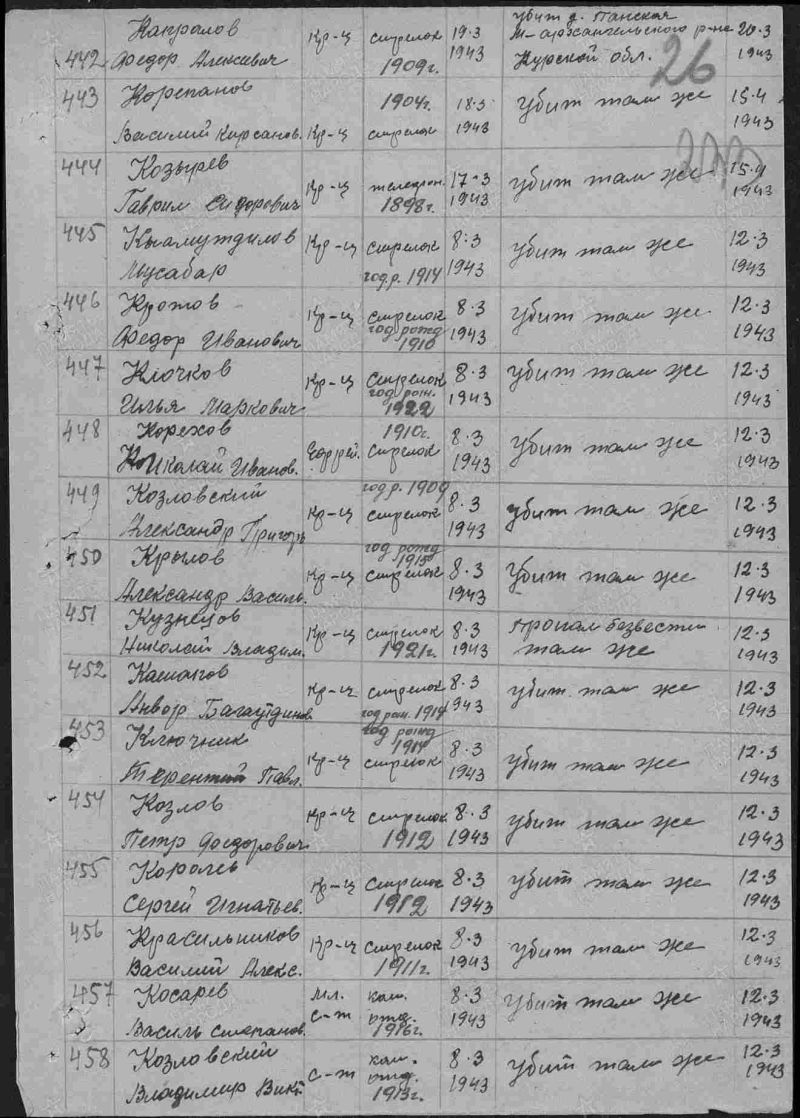 442 Капралов Федор Алексеевич Кр-ц стрелок 1909г. 19·3 1943 убит д. Панская М-архангельского р-на Курской обл. 20·3 1943
26
443 Корепанов Василий Кирсанов. Кр-ц 1904г. стрелок 18·3 1943 убит там же 15·4 1943
444 Козырев Гаврил Сидорович Кр-ц телефон. 1898г. 17·3 1943 убит там же 15·4 1943
445 Кыамутдилов Мусабар Кр-ц стрелок год р. 1914 8·3 1943 убит там же 12·3 1943
446 Кротов Федор Иванович Кр-ц стрелок год рожд 1910 8·3 1943 убит там же 12·3 1943
447 Клочков Илья Маркович Кр-ц стрелок год рож. 1922 8·3 1943 убит там же 12·3 1943
448 Корехов Николай Иванов. Ефрей. 1910г. стрелок 8·3 1943 убит там же 12·3 1943
449 Козловский Александр Григорь Кр-ц год р. 1909 стрелок 8·3 1943 убит там же 12·3 1943
450 Крылов Александр Василь. Кр-ц год рожд 1915 стрелок 8·3 1943 убит там же 12·3 1943
451 Кузнецов Николай Владим. Кр-ц стрелок 1921г. 8·3 1943 пропал безвести там же 12·3 1943
452 Кашапов Анвар Багаутдинов Кр-ц стрелок год рож. 1914 8·3 1943 убит там же 12·3 1943
453 Ключник Терентий Павл. Кр-ц год рожд 1914 стрелок 8·3 1943 убит там же 12·3 1943
454 Козлов Петр Федорович Кр-ц стрелок 1912 8·3 1943 убит там же 12·3 1943
455 Королев Сергей Игнатьев. Кр-ц стрелок 1912 8·3 1943 убит там же 12·3 1943
456 Красильников Василий Алекс. Кр-ц стрелок 1911г. 8·3 1943 убит там же 12·3 1943
457 Косарев Василь степанов. мл. с-т ком. отд. 1916г. 8·3 1943 убит там же 12·3 1943
458 Козловский Владимир Викт. с-т ком. отд. 1913г. 8·3 1943 убит там же 12·3 1943